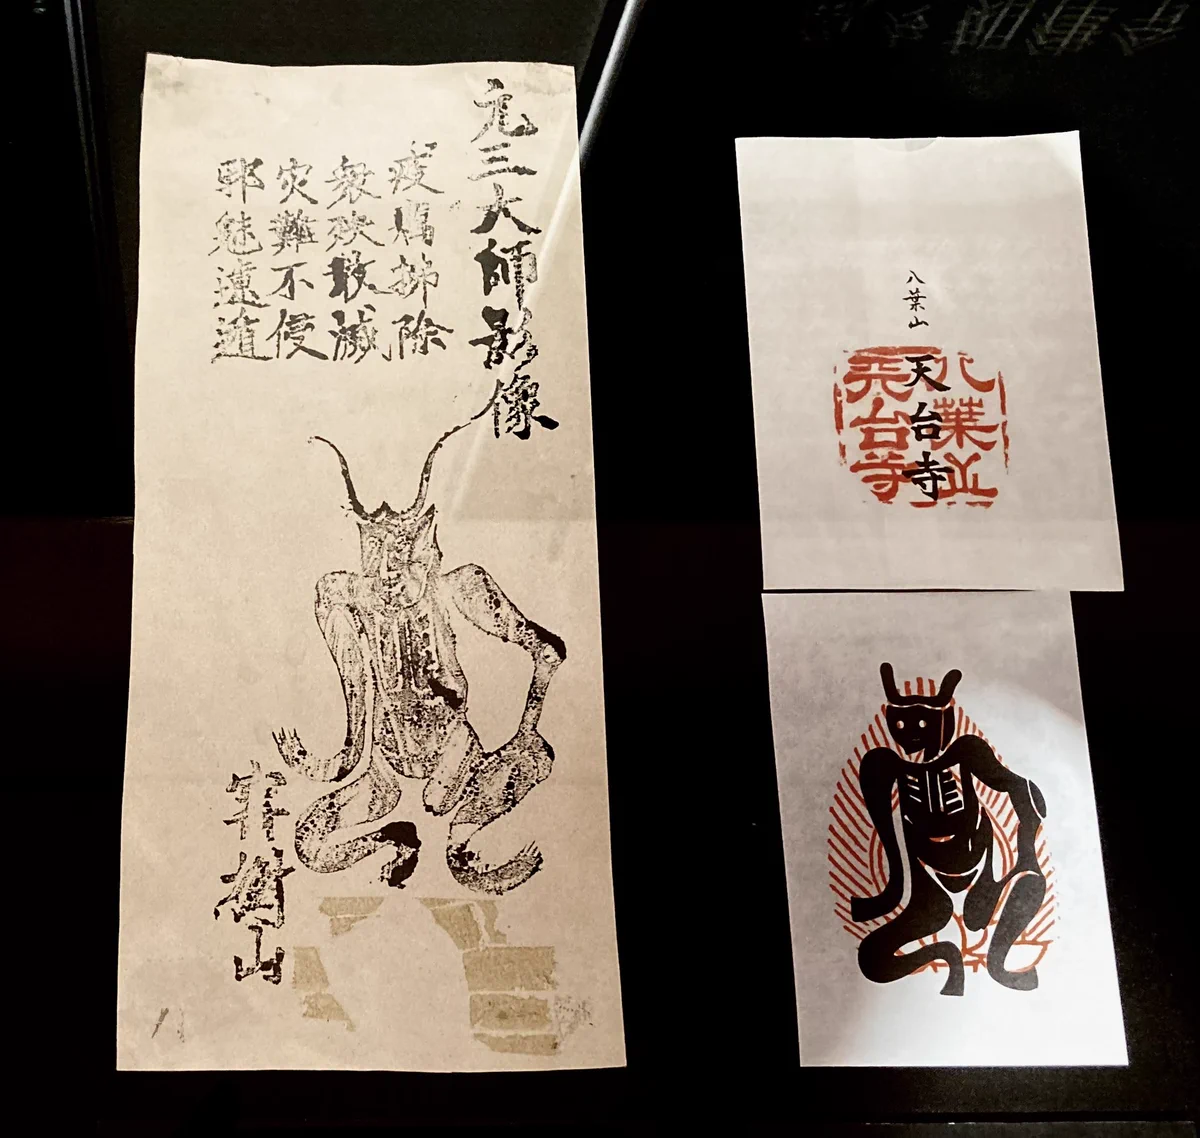 元三大師影像
疫癘拂除
衆殃散滅
灾難不侵
邪魅遠遁
山
八葉山
天台寺
八葉山
天台寺